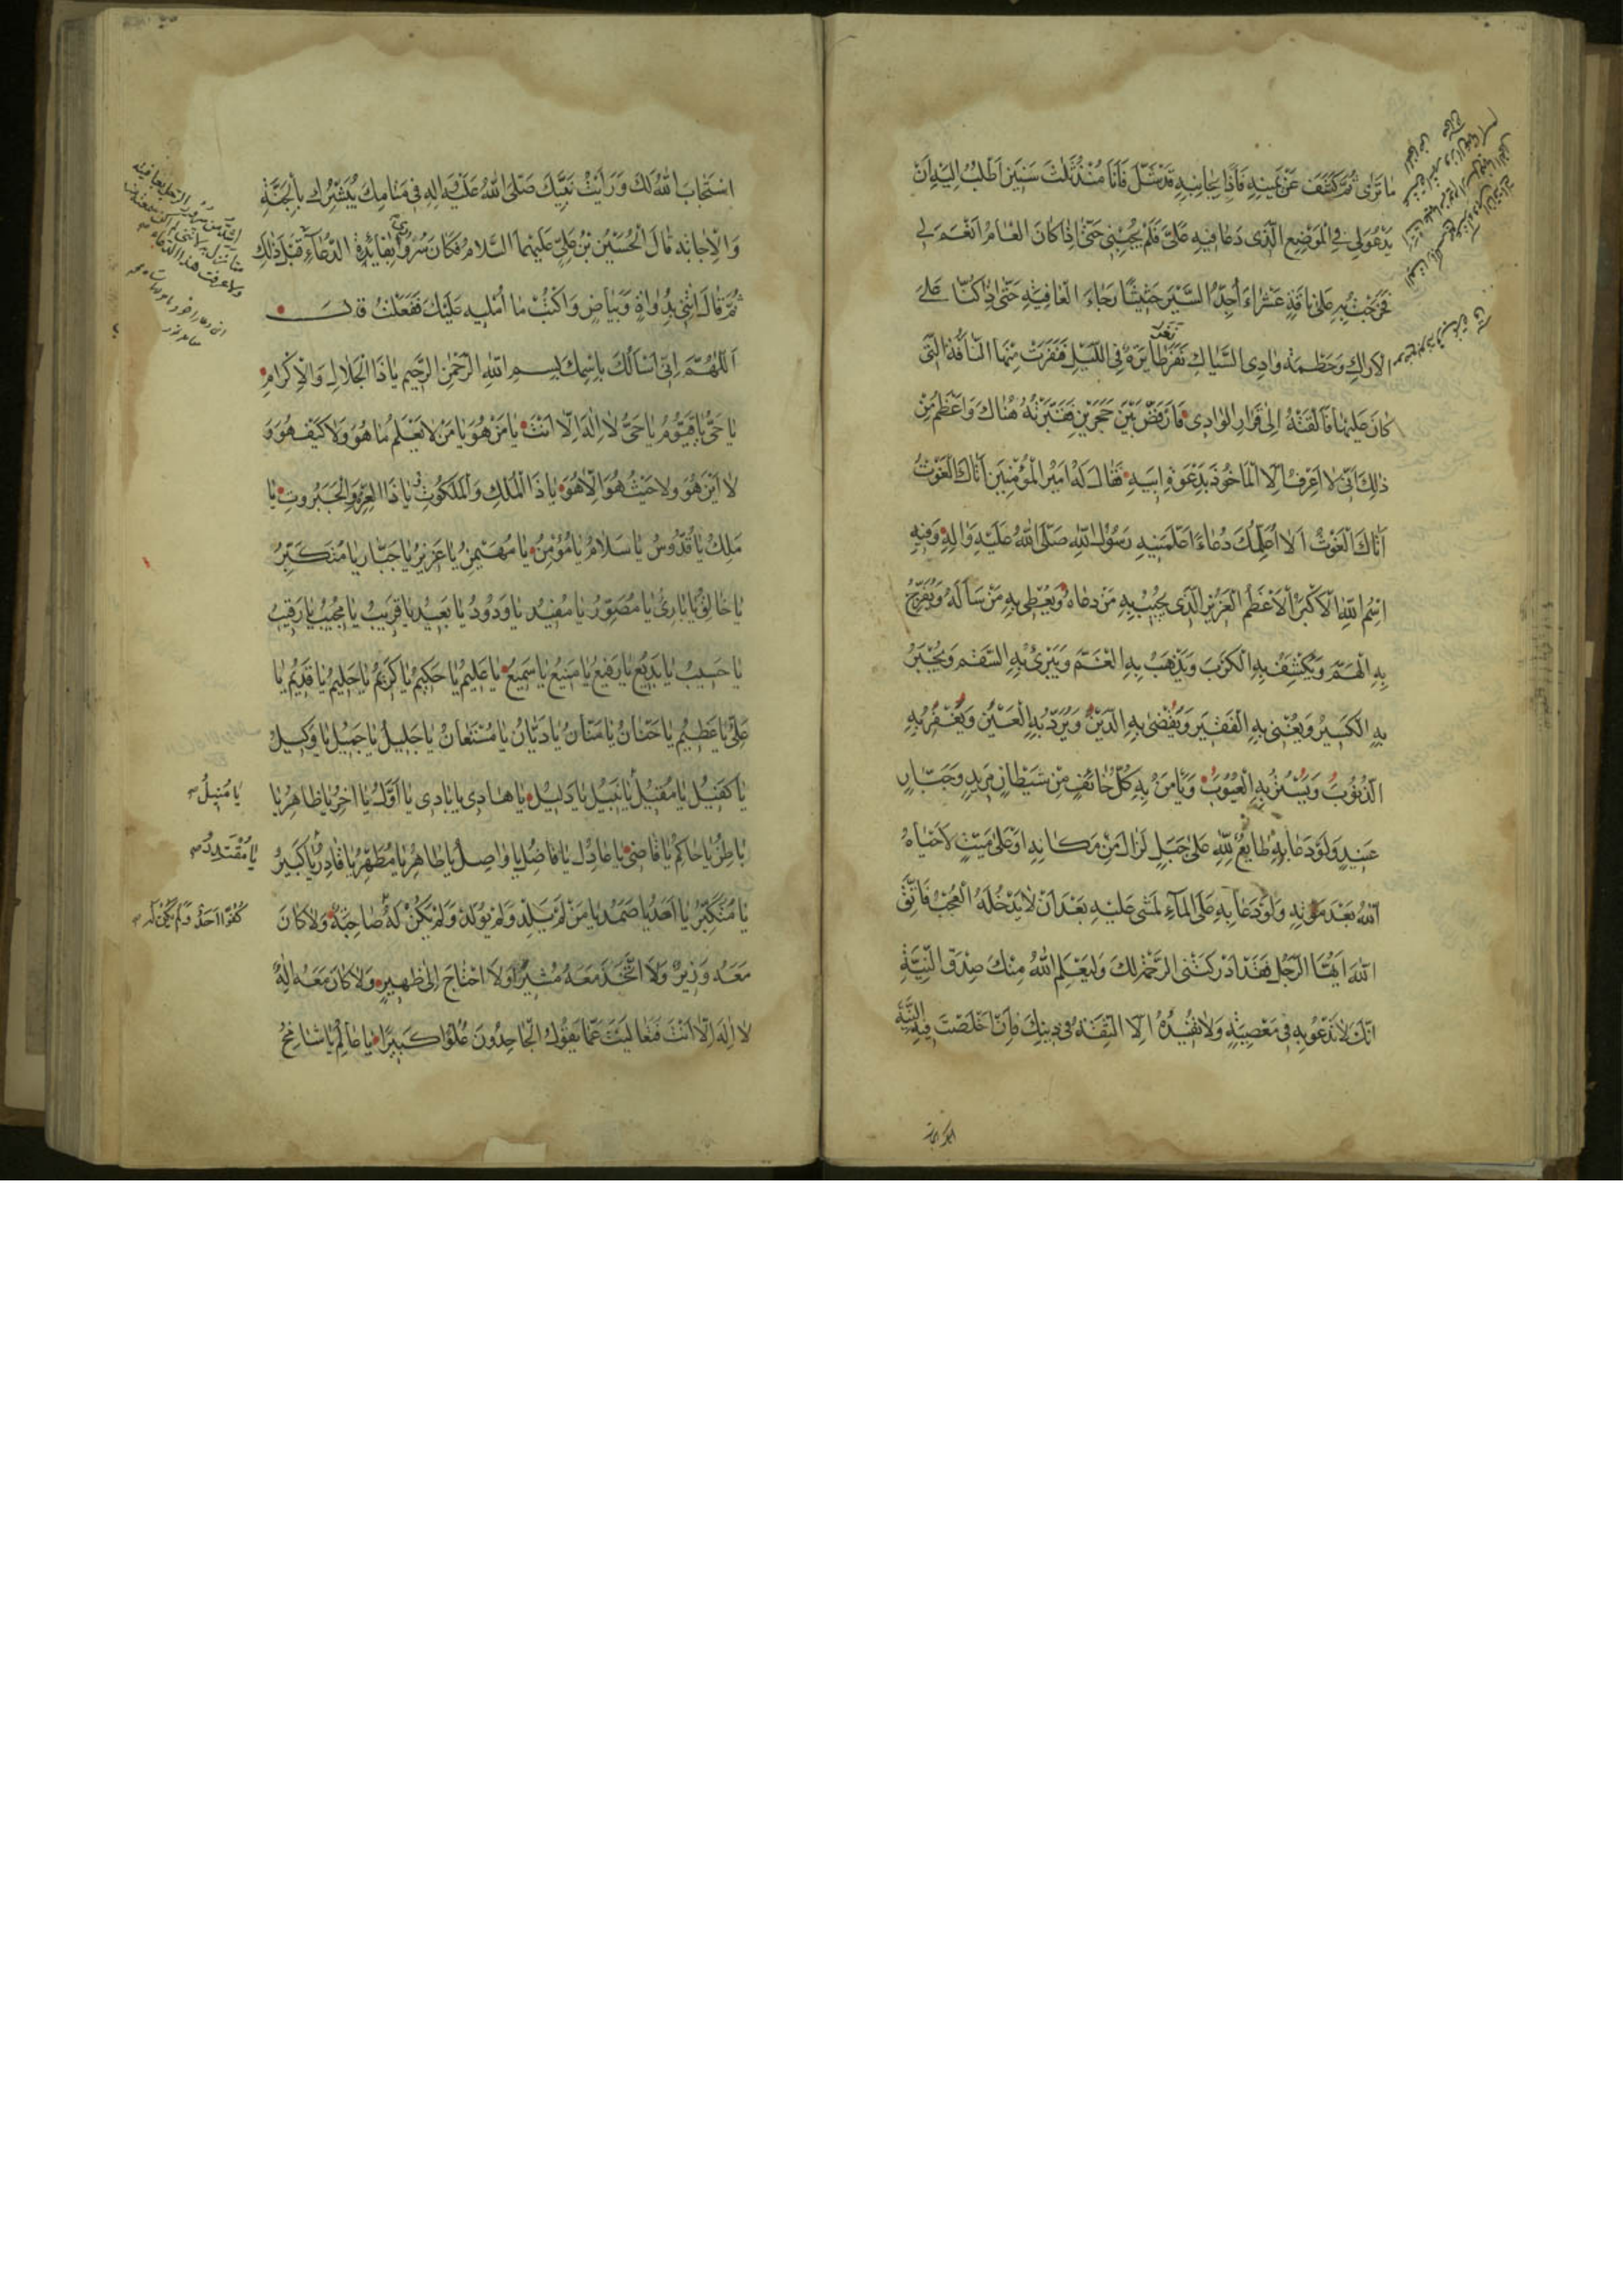 ما ترى ثم كشف عن يمينه فاذا بجانبه قد شل فانا منذ ثلث سنين اطلب اليه ان
يدعو لي في الموضع الذى دعا فيه على فلم يجبنى حتى اذا كان العام انعم لى
فخرجت به على ناقة عشراء اجد السير حثيثا رجاء العافية حتى اذا كنا على
الاراك وحطمة وادى السياك نفر طاير فى الليل فنفرت منها الناقة التى
كان عليها فالقته الى قرار الوادى فارفض بين حجرين فقبرته هناك واعظم من
ذلك انى لا اعرف الا الماخوذ بدعوة ابيه فقال له امير المؤمنين اتاك الغوث
اتاك الغوث الا اعلمك دعاء علمنيه رسول الله صلى الله عليه واله وفيه
اسم الله الاكبر الاعظم العزيز الذى يجيب به من دعاه ويعطى به من ساله ويفرج
به الهم ويكشف به الكرب ويذهب به الغم ويبرئ به السقم ويجبر
به الكسير ويغنى به الفقير ويقضى به الدين ويرد به العين ويغفر به
الذنوب ويستر به العيوب ويأمن به كل خائف من شيطان مريد وجبار
عنيد ولو دعا به طايع لله على جبل لزال من مكانه او على ميت لاحياه
الله بعد موته ولو دعا به على المآء لمشى عليه بعد ان لا يدخله العجب فاتق
الله ايها الرجل فقد ادركتنى الرحمة لك وليعلم الله منك صدق النية
انك لا تدعو به فى معصية ولا تفيده الا الثقة فى دينك فان اخلصت فيه النية
استجاب الله لك ورايت نبيك صلى الله عليه واله فى منامك يبشرك بالجنة
والاجابة قال الحسين بن على عليهما السلام فكان سروري بفائدة الدعاء
اشد من سرور الرجل بعافيته
ثم قال ائتنى بدواة وبياض واكتب ما امليه عليك ففعلت قال
اللهم انى اسالك باسمك بسم الله الرحمن الرحيم يا ذا الجلال والاكرام
يا حى يا قيوم يا حى لا اله الا انت يا من هو يا من لا يعلم ما هو ولا كيف هو و
لا اين هو ولا حيث هو الا هو يا ذا الملك والملكوت يا ذا العزة والجبروت يا
ملك يا قدوس يا سلام يا مؤمن يا مهيمن يا عزيز يا جبار يا متكبر
يا خالق يا بارئ يا مصور يا مفيد يا ودود يا بعيد يا قريب يا مجيب يا رقيب
يا حسيب يا بديع يا رفيع يا منيع يا سميع يا عليم يا حكيم يا كريم يا حليم يا قديم يا
على يا عظيم يا حنان يا منان يا ديان يا مستعان يا جليل يا جميل يا وكيل
يا كفيل يا مقيل يا نبيل يا دليل يا هادى يا بادى يا اول يا اخر يا ظاهر يا
يا منيل
باطن يا حاكم يا قاضى يا عادل يا فاضل يا واصل يا طاهر يا مطهر يا قادر يا كبير
يا مقتدر
يا متكبر يا احد يا صمد يا من لم يلد ولم يولد ولم يكن له صاحبة ولا كان
كفوا احد ولم يكن له
معه وزير ولا اتخذ معه مشيرا ولا احتاج الى ظهير ولا كان معه اله
لا اله الا انت فتعاليت عما يقول الجاحدون علوا كبيرا يا عالم يا شامخ